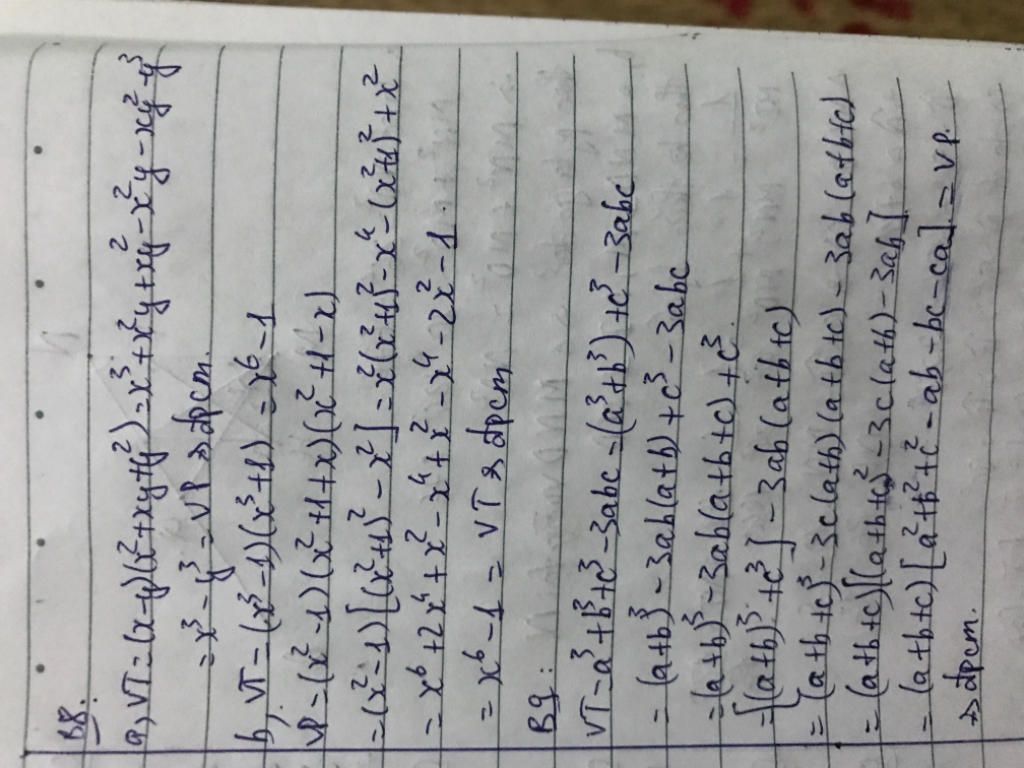 B8.
a, VT = (x-y)(x²+xy+y²) = x³+x²y+xy²-x²y-xy²-y³
= x³-y³ = VP → đpcm.
b, VT = (x³-1)(x³+1) = x⁶-1
VP = (x²-1)(x²+1+x)(x²+1-x)
= (x²-1)[(x²+1)²-x²] = x²(x²+1)²-x⁴-(x²+1)²+x²
= x⁶+2x⁴+x²-x⁴+x²-x⁴-2x²-1.
= x⁶-1 = VT → đpcm
B9:
VT = a³+b³+c³-3abc = (a³+b³)+c³-3abc
= (a+b)³-3ab(a+b)+c³-3abc
= (a+b)³-3ab(a+b+c)+c³.
= [(a+b)³+c³]-3ab(a+b+c)
= (a+b+c)³-3c(a+b)(a+b+c)-3ab(a+b+c)
= (a+b+c)[(a+b+c)²-3c(a+b)-3ab]
= (a+b+c)[a²+b²+c²-ab-bc-ca] = VP.
→ đpcm.